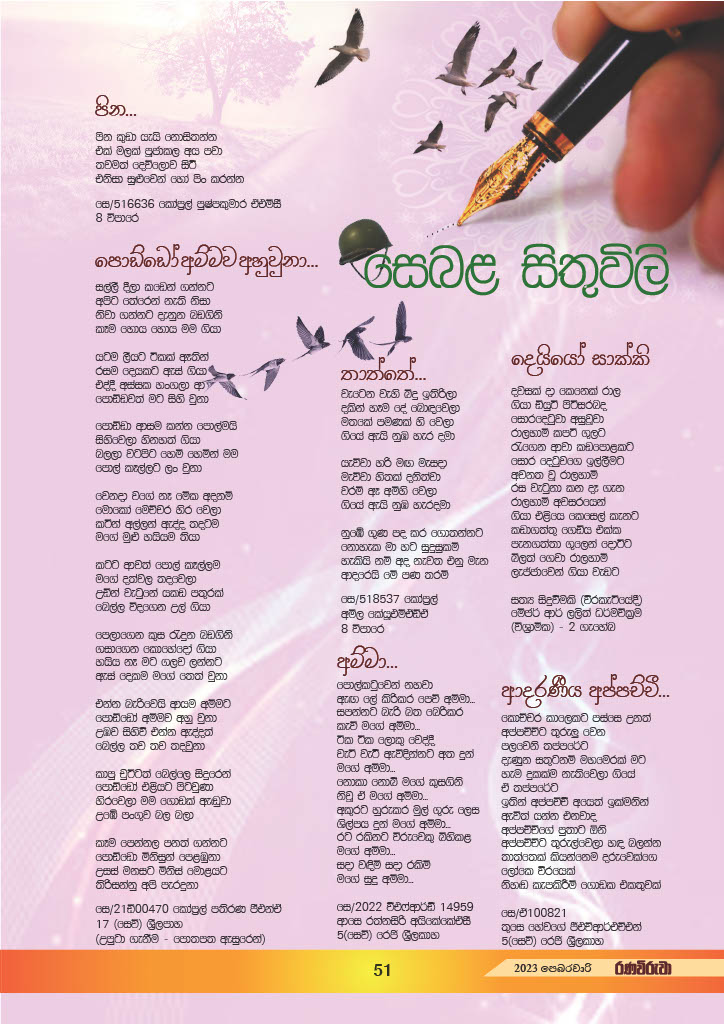 පින...
පින කුඩා යැයි නොසිතන්න
එක් මලක් පූජාකල අය පවා
තවමත් දෙව්ලොව සිටී
එනිසා සුළුවෙන් හෝ පිං කරන්න
සෙ/516636 කෝප්‍රල් පුෂ්පකුමාර එච්එම්සී
8 විපාරෙ
පොඩ්ඩෝ අම්මව අහුවුනා...
සල්ලී දීලා කඩෙන් ගන්නට
අපිට තේරෙන් නැති නිසා
නිවා ගන්නට දැනුන බඩගිනි
කෑම හොය හොය මම ගියා
යටම ලීයට ටිකක් ඈතින්
රසම දෙයකට ඇස් ගියා
එද්දී අස්සක හංගලා ආ
පොඩ්ඩවත් මට සිහි වුනා
පොඩ්ඩා ආසම කන්න පොල්මයි
සිහිවෙලා හිනහත් ගියා
බලලා වටපිට හෙමි හෙමින් මම
පොල් කෑල්ලට ලං වුනා
වෙනදා වගේ නෑ මේක අදනම්
මොකෝ මෙච්චර හිර වෙලා
කටින් අල්ලන් ඇද්ද තදටම
මගේ මුළු හයියම තියා
කටට ආවත් පොල් කෑල්ලම
මගේ දත්වල තදවෙලා
උඩින් වැටුනේ යකඩ පතුරක්
බෙල්ල විදගෙන උල් ගියා
පෙලාගෙන කුස රැදුන බඩගිනි
ගසාගෙන කොහේදෝ ගියා
හයිය නෑ මට ගලව ලන්නට
ඇස් දෙකම මගේ තෙත් වුනා
එන්න බැරිවෙයි ආයම අම්මට
පොඩ්ඩෝ අම්මව අහු වුනා
උඹව සිහිවී එන්න ඇද්දත්
බෙල්ල තව තව තදවුනා
කාපු චුට්ටත් බෙල්ලෙ සිදුරෙන්
පොඩ්ඩෝ එළියට පිටවුණා
හිරවෙලා මම ගොඩක් ඇඬුවා
උඹේ පංගුව බල බලා
කෑම පෙන්නල පනත් ගන්නට
පොඩ්ඩො මිනිසුන් පෙළඹුනා
උසස් මනසට මිනිස් මොළයට
තිරිසන්නු අපි පැරදුනා
සෙ/21ඩී00470 කෝප්‍රල් පතිරණ පීඑන්ඒ
17 (සෙවි) ශ්‍රීලපාහ
(උපුටා ගැනීම - පොතපත ඇසුරෙන්)
සෙබළ සිතුවිලි
තාත්තේ...
වැටෙන වැහි බිදු ඉතිරිලා
දකින් හැම දේ බොඳවෙලා
මතකේ පමණක් හී වෙලා
ගියේ ඇයි නුඹ හැර දමා
යැව්වා හරි මඟ මැසදා
මැව්වා හිතක් දනිත්වා
වරම් ඈ අමිහි වෙලා
ගියේ ඇයි නුඹ හැරදමා
නුඹේ ගුණ පද කර ගොතන්නට
නොහැක මා හට සුදුසුකම්
හැකියි නම් අද නැවත එනු මැන
ආදරෙයි මේ පණ තරම්
සෙ/518537 කෝප්‍රල්
අමිල කේයූඑම්එච්ඒ
8 විපාරෙ
අම්මා...
පොල්කටුවෙන් නහවා
ඇඟ ලේ කිරිකර පෙවී අම්මා...
සපන්නට බැරි බත බේරිකර
කැවී මගේ අම්මා...
ටික ටික ලොකු වෙද්දී
වැටී වැටී ඇවිදින්නට අත දුන්
මගේ අම්මා...
නොකා නොබී මගේ කුසගිනි
නිවූ ඒ මගේ අම්මා...
අකුරට හුරුකර මුල් ගුරු ලෙස
ශිල්පය දුන් මගේ අම්මා...
රට රකිනට විරුවෙකු බිහිකළ
මගේ අම්මා...
සදා වඳිමි සදා රකිමි
මගේ සුදු අම්මා...
සෙ/2022 වීඑෆ්ආර්ඩී 14959
ආසෙ රත්නසිරි අයිකේකේඒසී
5(සෙවි) රෙජි ශ්‍රීලකාහ
දෙයියෝ සාක්කි
දවසක් දා කෙනෙක් රාල
ගියා ඩියුටි පිටිසරබද
සොරදෙටුවා අසුවුවා
රාලහාමි කපටි ගුලට
රැගෙන ආවා කඩපොළකට
සොර දෙටුවගෙ ඉල්ලීමට
අවනත වූ රාලහාමි
රස වැටුනා කන දෑ ගැන
රාලහාමි අවසරයෙන්
ගියා එළියෙ කෙසෙල් කැනට
කඩාගත්තු ගෙඩිය එක්ක
පැනගත්තා ගුලෙන් දොට්ට
බිලත් ගෙවා රාලහාමි
ලැජ්ජාවෙන් ගියා වැඩට
සත්‍ය සිදුවීමකි (වීරකැටියේදී)
මේජර් ආර් ලලිත් ධර්මවික්‍රම
(විශ්‍රාමික) - 2 ගැහේබ
ආදරණීය අප්පච්චී...
කොච්චර කාලෙකට පස්සෙ උනත්
අප්පච්චිට තුරුලු වෙන
පලවෙනි තප්පරේට
දැණුන සතුටනම් මහමෙරක් මට
හැම දුකක්ම නැතිවෙලා ගියේ
ඒ තප්පරේට
ඉතින් අප්පච්චි අයෙත් ඉක්මනින්
ඇවිත් යන්න එනවාද
අප්පච්චිගේ පුතාට ඕනි
අප්පච්චිට තුරුල්වෙලා හඳ බලන්න
තාත්තෙක් කියන්නෙම දරුවෙක්ගෙ
ලෝකෙ වීරයෙක්
නිහඬ කැපකිරීම් ගොඩක එකතුවක්
සෙ/ඒ100821
තුසෙ හේවගේ ජීඑච්ආර්එච්එන්
5(සෙවි) රෙජි ශ්‍රීලකාහ
51
2023 පෙබරවාරි රණවිරුවා